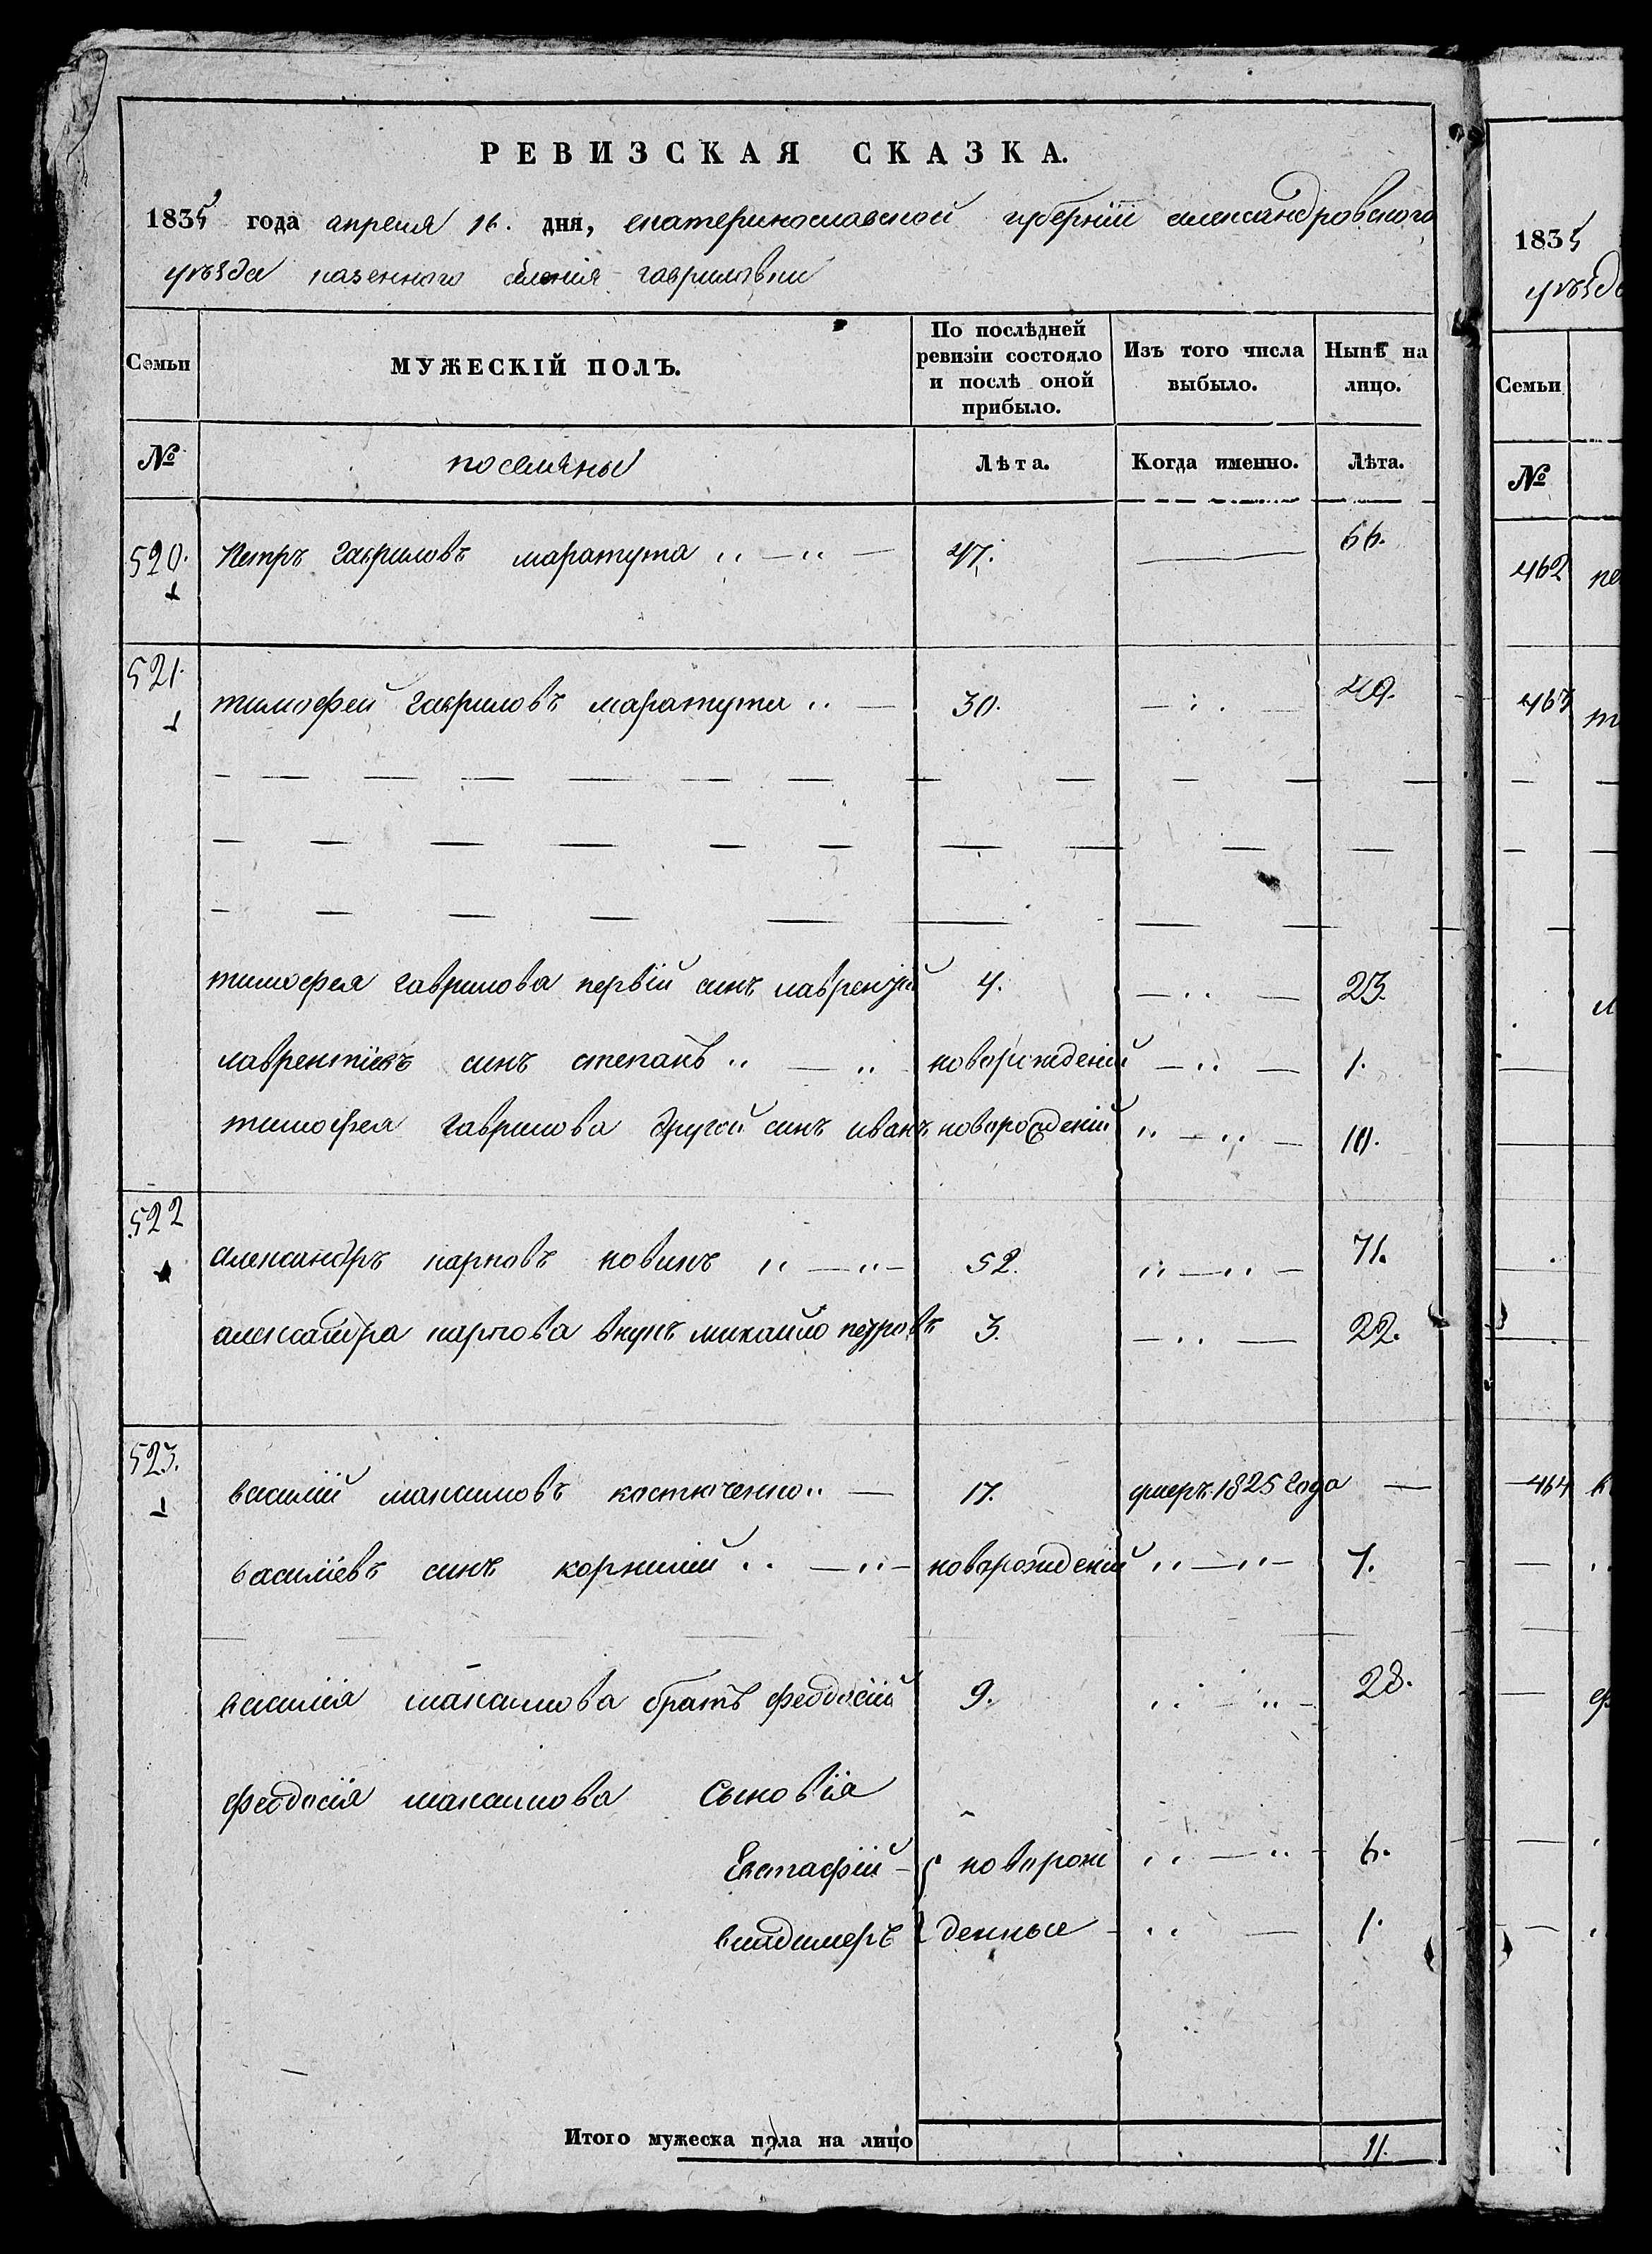 РЕВИЗСКАЯ СКАЗКА.
1835 года апреля 16. дня, екатеринославской губернїи александровского
уѣзда казенного селенія гавриловки
Семьи МУЖЕСКІЙ ПОЛЪ. По послѣдней ревизіи состояло и послѣ оной прибыло. Изъ того числа выбыло. Нынѣ на лицо.
№ поселяны Лѣта. Когда именно. Лѣта.
520. Петръ гавриловъ маратута 47. 66.
521. тимофей гавриловъ маратута 30. 49.
тимофея гаврилова первїй синъ лаврентій 4. 23.
лаврентїевъ синъ степанъ новорожденїй 1.
тимофея гаврилова другой синъ иванъ новорожденїй 10.
522 александръ карповъ новикъ 52. 71.
александра карпова внукъ михайло петровъ 3. 22.
523. василїй максимовъ костюченко 17. умеръ 1825 года
василїевъ синъ корнилїй новорожденїй 7.
василїя максимова братъ феодосїй 9. 28.
феодосїя максимова сыновїя
Евстафїй новорож 6.
владимеръ денные 1.
Итого мужеска пола на лицо 11.
1835
уѣзд
Семьи
№
462
463
464